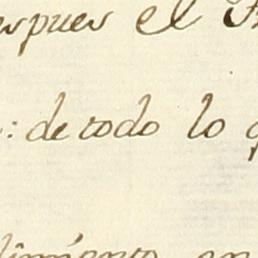 espues el
: de todo lo
en